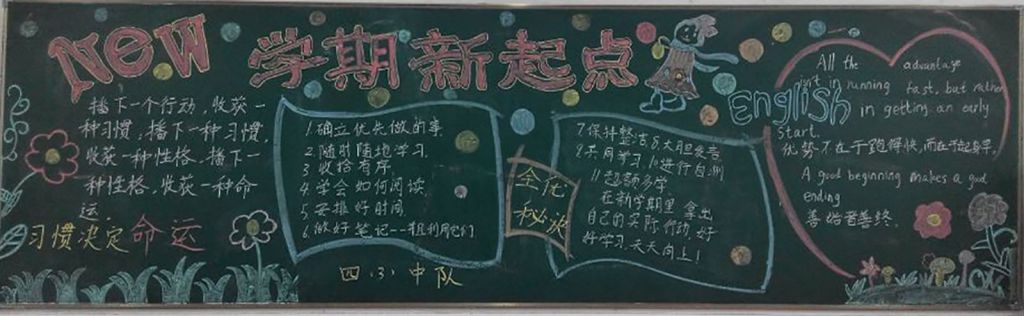 New 学期新起点
播下一个行动,收获一
种习惯,播下一种习惯,
收获一种性格,播下一
种性格,收获一种命
运。
习惯决定命运
1.确立优先做的事
2.随时随地学习
3.收拾有序
4.学会如何阅读
5.安排好时间
6.做好笔记--
四(3)中队
秘决
7.保持整洁 8.大胆发言
9.共同学习 10.进行自测
11.超额多学
在新学期里,拿出
自己的实际行动,好
好学习,天天向上!
English
All the advantage
isn't in running fast, but rather
in getting an early
start.
优势不在于跑得快,而在于起身早。
A good beginning makes a good
ending
善始者善终。